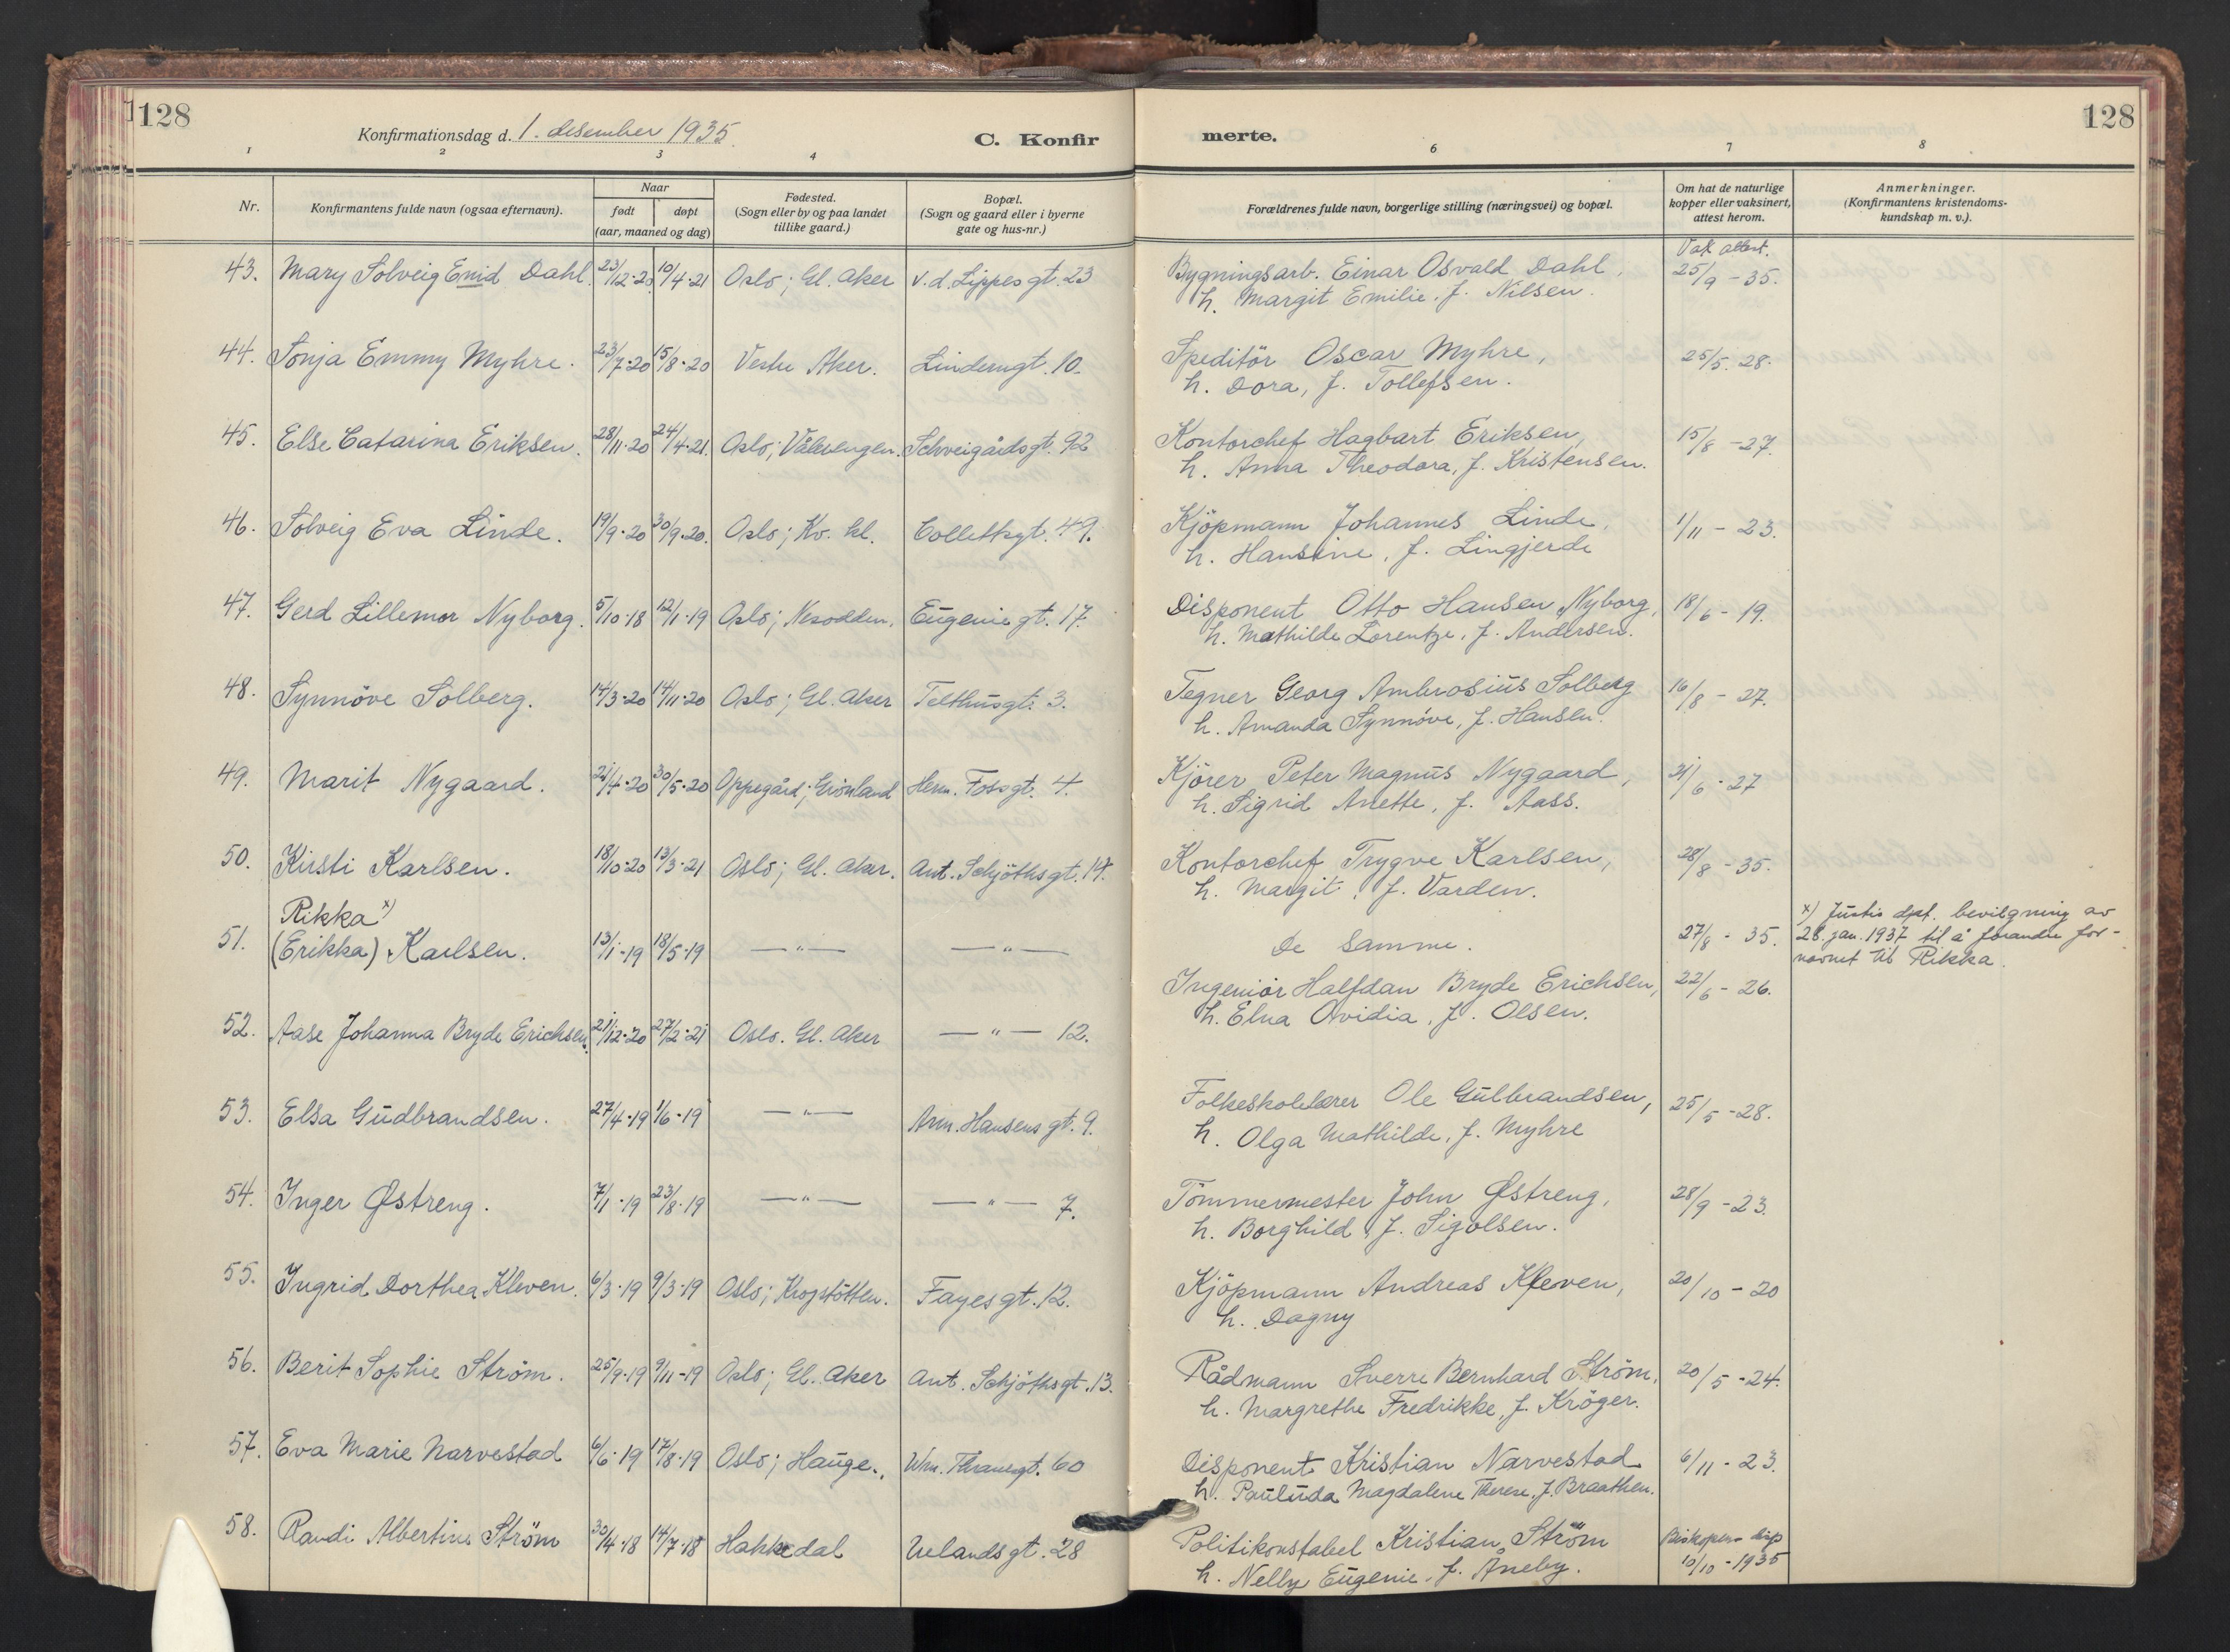 128
Konfirmationsdag d. 1. desember 1935.
C. Konfir
merte.
128
1 2 3 4 6 7 8
Nr.
Konfirmantens fulde navn (ogsaa efternavn).
Naar
født døpt
(aar, maaned og dag)
Fødested.
(Sogn eller by og paa landet
tillike gaard.)
Bopæl.
(Sogn og gaard eller i byerne
gate og hus-nr.)
Forældrenes fulde navn, borgerlige stilling (næringsvei) og bopæl.
Om hat de naturlige
kopper eller vaksinert,
attest herom.
Anmerkninger.
(Konfirmantens kristendoms-
kundskap m. v.).
Vak attest.
43. Mary Solveig Enid Dahl. 23/12-20 10/4-21 Oslo; Gl. Aker v. d. Lippes gt. 23 Bygningsarb. Einar Osvald Dahl, 25/9 - 35.
h. Margit Emilie, f. Nilsen.
44. Sonja Emmy Myhre. 23/7-20 15/8-20 Vestre Aker. Lindemgt. 10. Speditör Oscar Myhre, 25/5. 28.
h. Dora, f. Tollefsen.
45. Else Catarina Eriksen. 28/11-20 24/4-21. Oslo; Vålerengen. Schveigårdsgt. 92 Kontorchef Hagbart Eriksen, 15/8 - 27.
h. Anna Theodora, f. Kristensen.
46. Solveig Eva Linde. 19/9-20 30/9-20. Oslo; Kv. kl. Collettsgt. 49. Kjöpmann Johannes Linde, 1/11 - 23.
h. Hansine, f. Lingjerde
47. Gerd Lillemor Nyborg. 5/10-18 12/1-19 Oslo; Nesodden. Eugenie gt. 17. Disponent Otto Hansen Nyborg, 18/6 - 19.
h. Mathilde Lorentze, f. Andersen.
48. Synnöve Solberg. 14/3-20 14/11-20 Oslo; Gl. Aker Telthusgt. 3. Tegner Georg Ambrosius Solberg 16/8 - 27.
h. Amanda Synnöve, f. Hansen.
49. Marit Nygaard. 21/4-20 30/5-20 Oppegård; Grönland Herm. Fossgt. 4. Kjörer Peter Magnus Nygaard, 21/6 - 27
h. Sigrid Anette, f. Aass.
50. Kirsti Karlsen. 18/10-20 13/3-21 Oslo; Gl. Aker. Ant. Schjöthsgt. 14. Kontorchef Trygve Karlsen, 28/8 - 35.
h. Margit, f. Varden.
Rikka x)
51. (Erikka) Karlsen. 13/1-19 18/5-19 — " — — " — De samme. 27/8 - 35.
x) Justis dpt. bevilgning av
28. jan. 1937 til å forandre for-
navnet til Rikka.
Ingeniör Halfdan Bryde Erichsen, 22/6 - 26.
h. Elna Ovidia, f. Olsen.
52. Aase Johanna Bryde Erichsen. 21/12-20 27/2-21 Oslo. Gl. Aker — " — 12.
53. Elsa Gudbrandsen. 27/4-19 1/6-19 — " — Arm. Hansens gt. 9. Folkeskolelærer Ole Gulbrandsen, 25/5 - 28.
h. Olga Mathilde, f. Myhre
54. Inger Østreng. 7/1-19 23/8-19 — " — — " — 7. Tömmermester John Østreng, 28/9 - 23.
h. Borghild, f. Sigolsen.
55. Ingrid Dorthea Kleven. 6/3-19 9/3-19 Oslo; Krogstötten. Fayesgt. 12. Kjöpmann Andreas Kleven, 20/10 - 20
h. Dagny
56. Berit Sophie Ström. 25/9-19 9/11-19 Oslo; Gl. Aker Ant. Schjöthsgt. 13. Rådmann Sverre Bernhard Ström, 20/5 - 24.
h. Margrethe Fredrikke, f. Kröger.
57. Eva Marie Narvestad 6/6-19 17/8-19 Oslo; Hauge., Wm. Thranesgt. 60 Disponent Kristian Narvestad 6/11 - 23.
h. Pauluda Magdalene Therese, f. Braathen.
58. Randi Albertine Ström 30/4-18 14/7-18 Hakkedal Uelandsgt. 28 Politikonstabel Kristian Ström Biskopens disp
h. Nelly Eugenie, f. Åneby. 10/10 - 1935